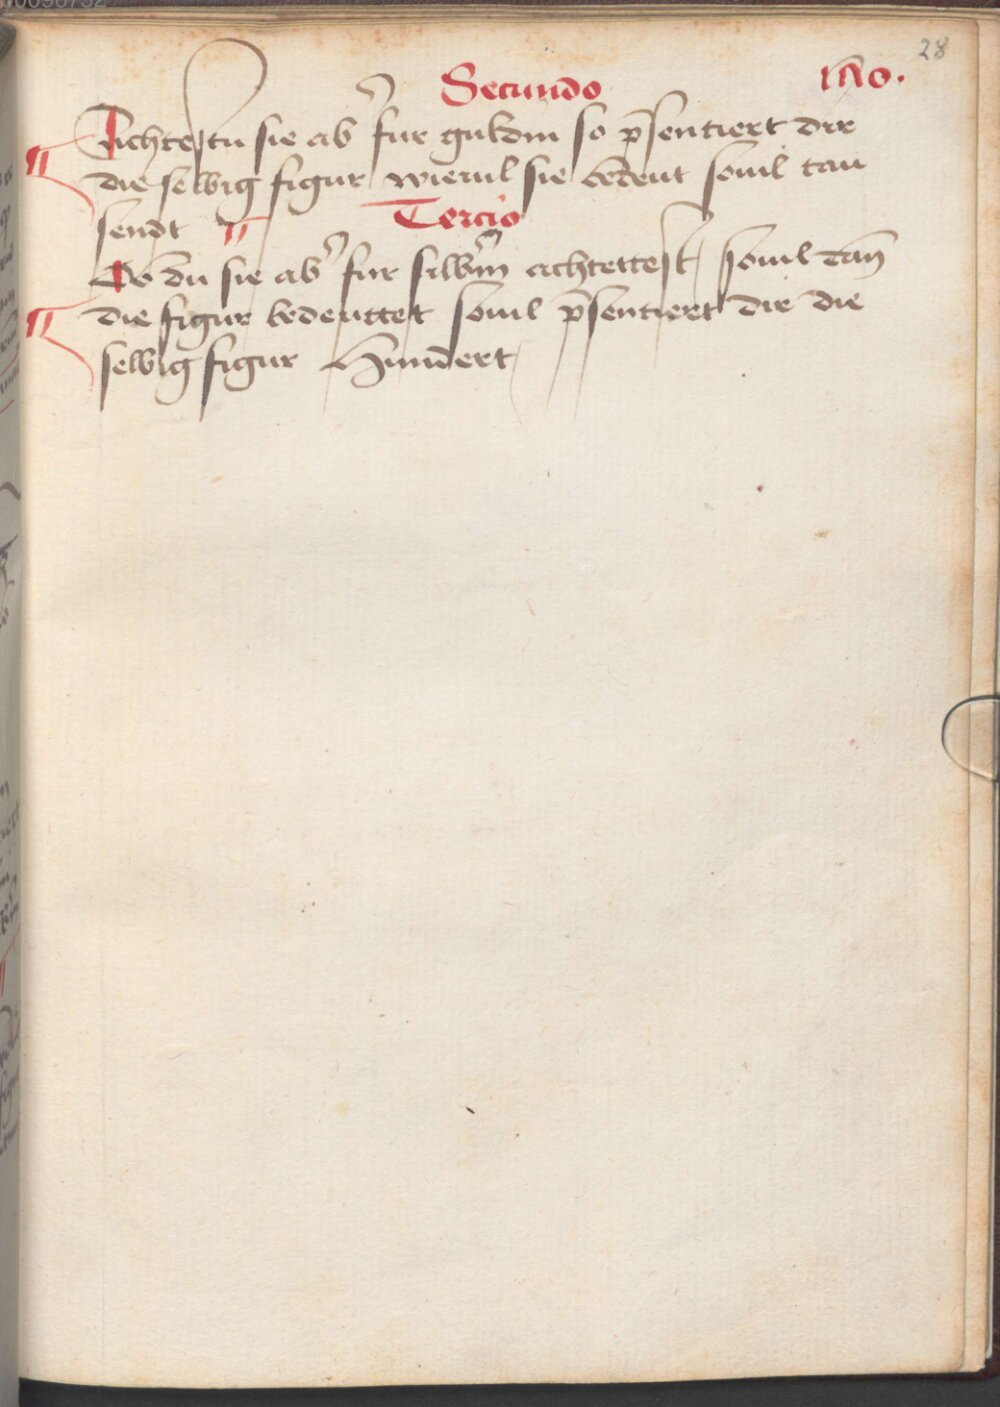 28
Secundo
Achtestu sie ab' fur guldin so p̄sentiert dir
die selbig figur wieuil sie bedeut souil tau
sendt
Tercio
So du sie ab' fur silb'in achtettest souil dan̄
die figur bedeuttet souil p̄sentiert dir die
selbig figur Hundert